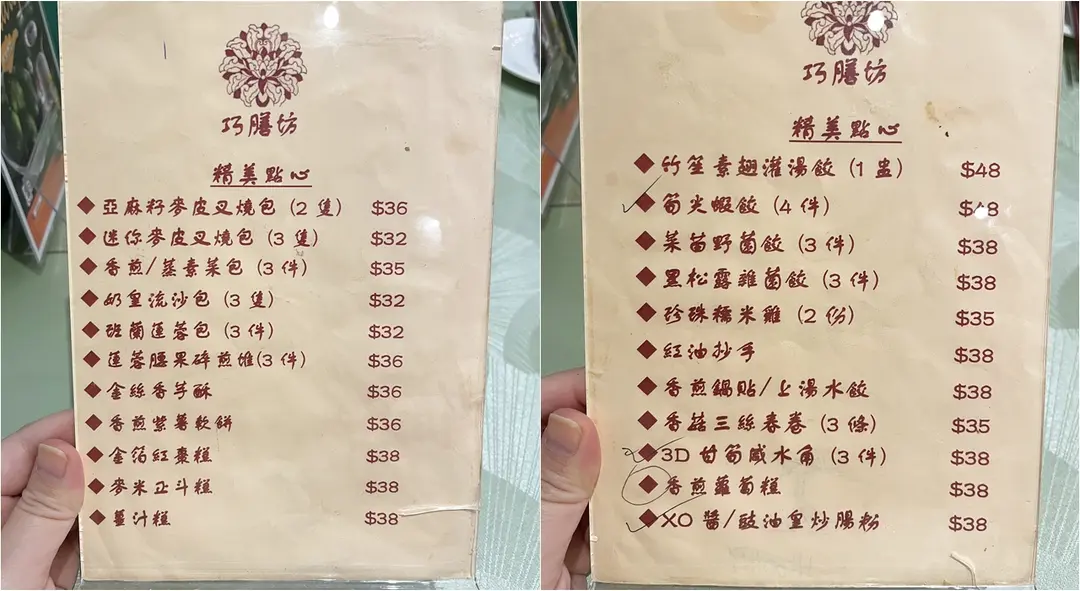 巧膳坊
精美點心
◆ 亞麻籽麥皮叉燒包 (2 隻) $36
◆ 迷你麥皮叉燒包 (3 隻) $32
◆ 香煎/蒸素菜包 (3 件) $35
◆ 奶皇流沙包 (3 隻) $32
◆ 班蘭蓮蓉包 (3 件) $32
◆ 蓮蓉腰果碎煎堆(3 件) $36
◆ 金絲香芋酥 $36
◆ 香煎紫薯軟餅 $36
◆ 金箔紅棗糕 $38
◆ 麥米正斗糕 $38
◆ 薑汁糕 $38
巧膳坊
精美點心
◆ 竹笙素翅灌湯餃 (1 盅) $48
◆ 筍尖蝦餃 (4 件) $48
◆ 菜苗野菌餃 (3 件) $38
◆ 黑松露雜菌餃 (3 件) $38
◆ 珍珠糯米雞 (2 份) $35
◆ 紅油抄手 $38
◆ 香煎鍋貼/上湯水餃 $38
◆ 香菇三絲春卷 (3 條) $35
◆ 3D 甘筍咸水角 (3 件) $38
◆ 香煎蘿蔔糕 $38
◆ XO 醬/豉油皇炒腸粉 $38